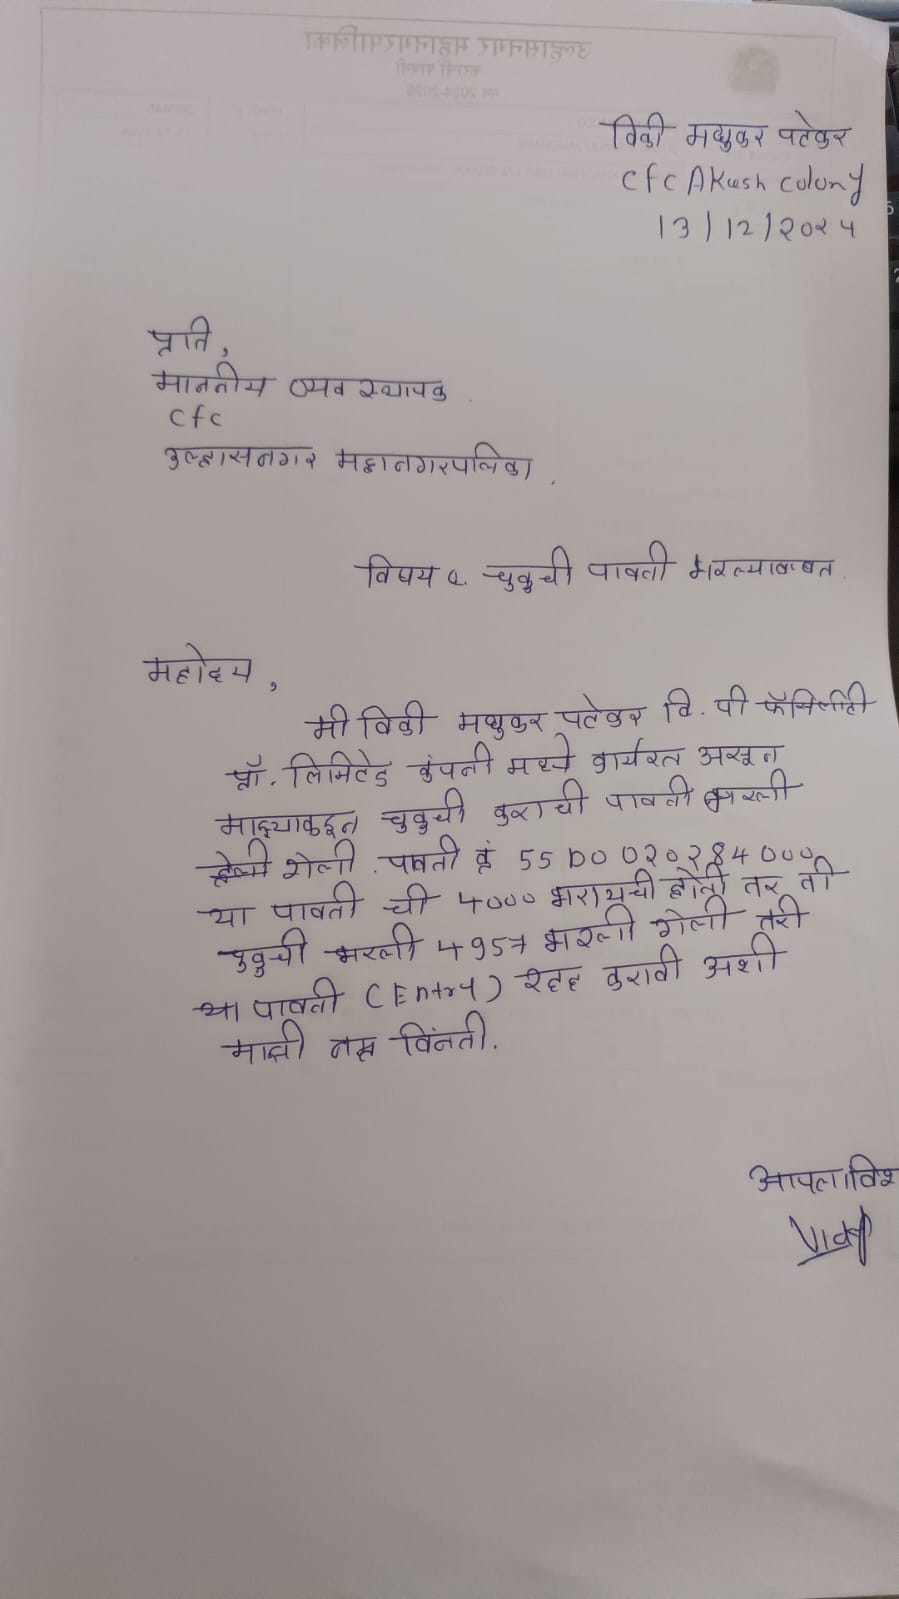 विकी मधुकर पटेकर
cfc Akash colony
13/12/२०२४
प्रति,
माननीय व्यवस्थापक.
cfc
उल्हासनगर महानगरपलिका.
विषय :- चुकुची पावती भरल्याबाबत.
महोदय,
मी विकी मधुकर पटेकर वि. पी फॅसिलीटी
प्रॉ. लिमिटेड कंपनी मध्ये कार्यरत असून
माझ्याकडून चुकुची कुराची पावती भरली
गेली. पावती क्रं 55D0020284000
या पावती ची 4000 भरायची होती तर ती
चुकुची भरली 4957 भरली गेली तरी
या पावती (Entry) रद्द करावी अशी
माझी नम्र विंनती.
आपला विश
Vicky